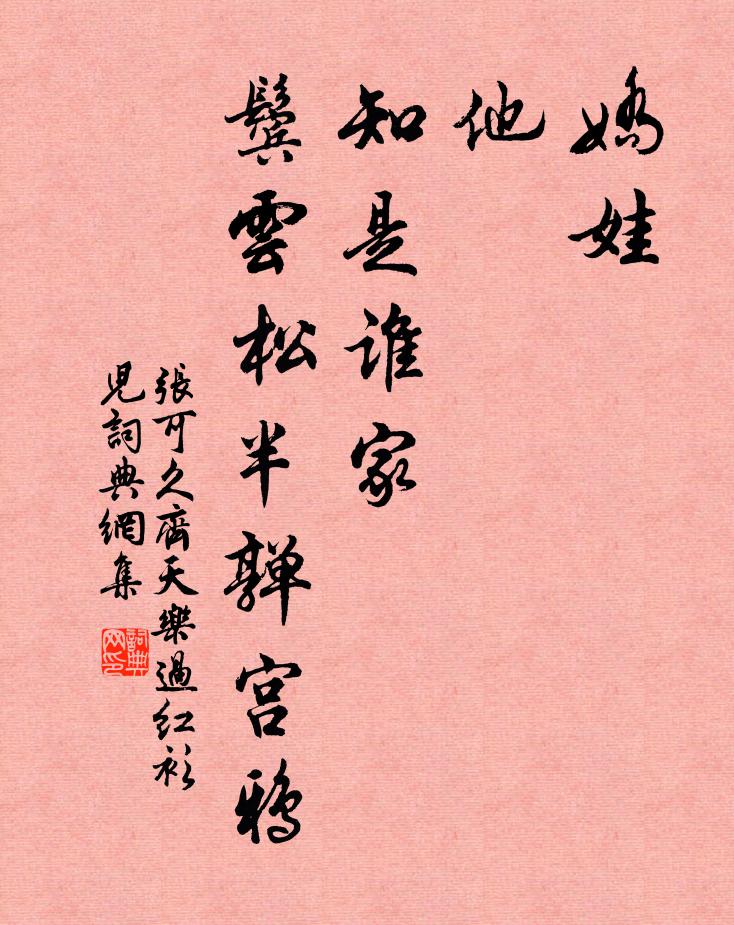 嬌娃
他
知是誰家
鬓雲松半嚲宮鴉
張可久齊天樂過红衫
児詞典網集
詞典
网印